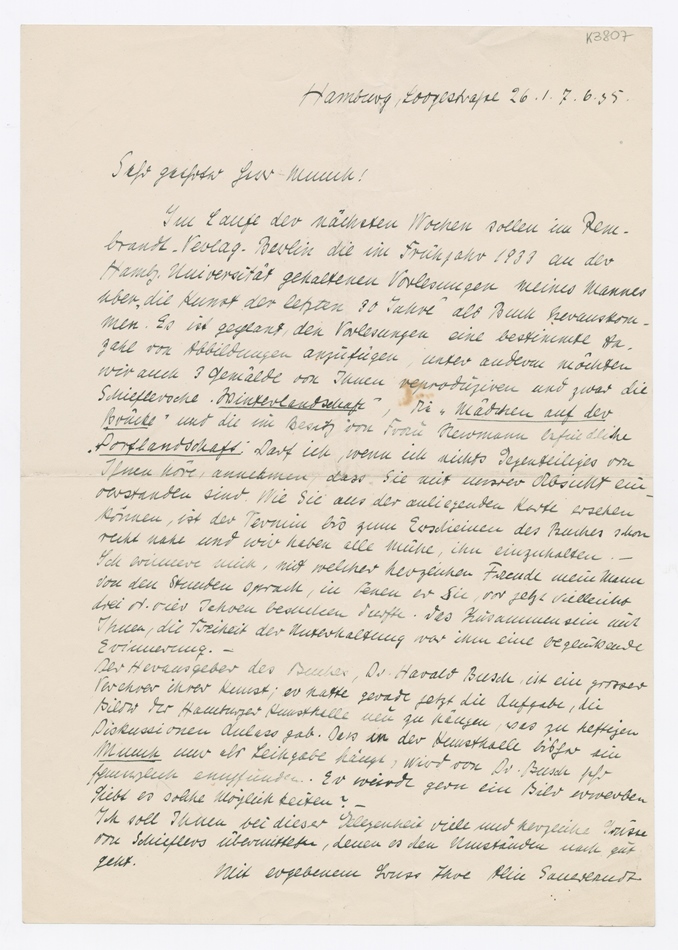 K3807
Hamburg, Loogestraße 26. 1. 7. 6. 35.
Sehr geehrter Herr Munch!
Im Laufe der nächsten Wochen sollen im Rem-
brandt-Verlag-Berlin die im Frühjahr 1933 an der
Hambg. Universität gehaltenen Vorlesungen meines Mannes
über „die Kunst der letzten 30 Jahre" als Buch herauskom-
men. Es ist geplant, den Vorlesungen eine bestimmte An-
zahl von Abbildungen anzufügen, unter anderm möchten
wir auch 3 Gemälde von Ihnen reproduzieren und zwar die
Schieflersche „Winterlandschaft", die „Mädchen auf der
Brücke" und die im Besitz von Frau Newmann befindliche
„Dorflandschaft". Darf ich, wenn ich nichts Gegenteiliges von
Ihnen höre, annehmen, dass Sie mit unsrer Absicht ein-
verstanden sind. Wie Sie aus der anliegenden Karte ersehen
können, ist der Termin bis zum Erscheinen des Buches schon
recht nahe und wir haben alle Mühe, ihn einzuhalten. —
Ich erinnere mich, mit welcher herzlichen Freude mein Mann
von den Stunden sprach, in denen er Sie, vor jetzt vielleicht
drei od. vier Jahren besuchen durfte. Das Zusammensein mit
Ihnen, die Freiheit der Unterhaltung war ihm eine beglückende
Erinnerung. —
Der Herausgeber des Buches, Dr. Harald Busch, ist ein grosser
Verehrer ihrer Kunst; er hatte gerade jetzt die Aufgabe, die
Bilder der Hamburger Kunsthalle neu zu hängen, was zu heftigen
Diskussionen Anlass gab. Dass in der Kunsthalle bisher ein
Munch nur als Leihgabe hängt, wird von Dr. Busch sehr
schmerzlich empfunden. Er würde gern ein Bild erwerben
Giebt es solche Möglichkeiten? —
Ich soll Ihnen bei dieser Gelegenheit viele und herzliche Grüsse
von Schieflers übermitteln, denen es den Umständen nach gut
geht.
Mit ergebenem Gruss Ihre Alice Sauerlandt